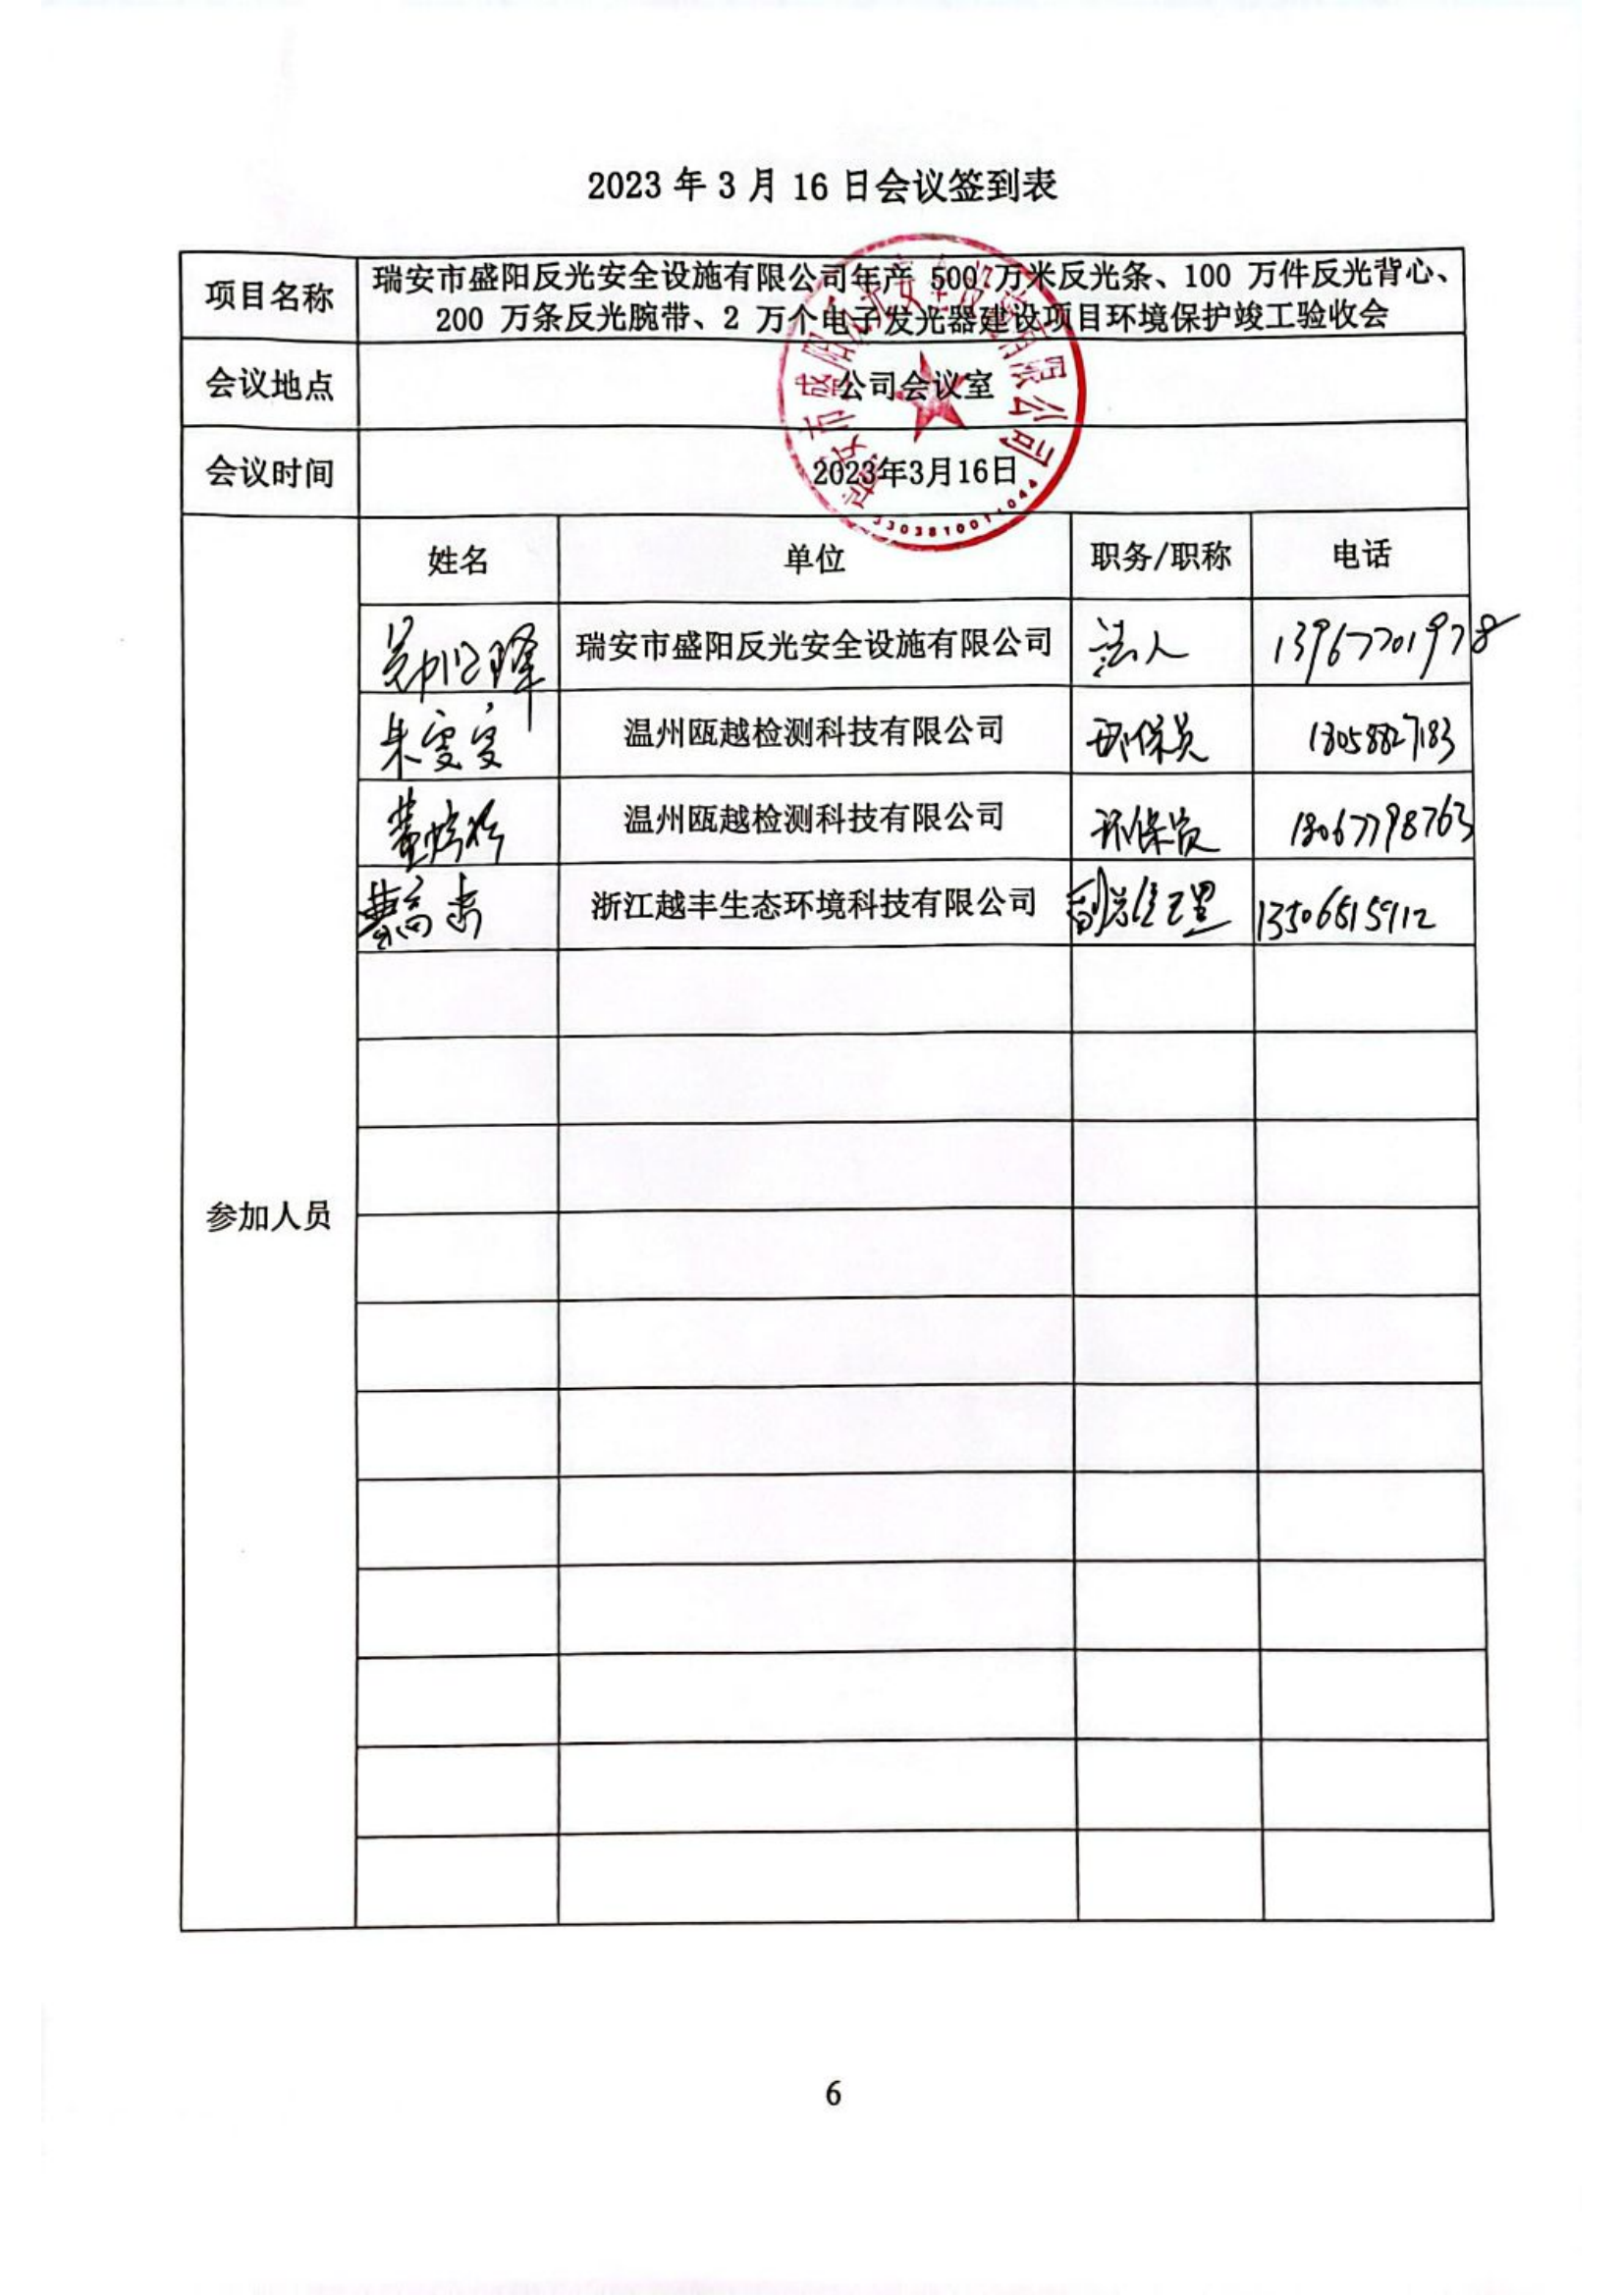 2023 年 3 月 16 日会议签到表
项目名称
瑞安市盛阳反光安全设施有限公司年产 500 万米反光条、100 万件反光背心、
200 万条反光腕带、2 万个电子发光器建设项目环境保护竣工验收会
会议地点
公司会议室
会议时间
2023年3月16日
瑞安市盛阳反光安全设施有限公司
3303810011044
参加人员
姓名 单位 职务/职称 电话
瑞安市盛阳反光安全设施有限公司 法人 13967701978
朱雯雯 温州瓯越检测科技有限公司 环保员
温州瓯越检测科技有限公司 环保员 18067798763
浙江越丰生态环境科技有限公司 副总经理 13506515912
6